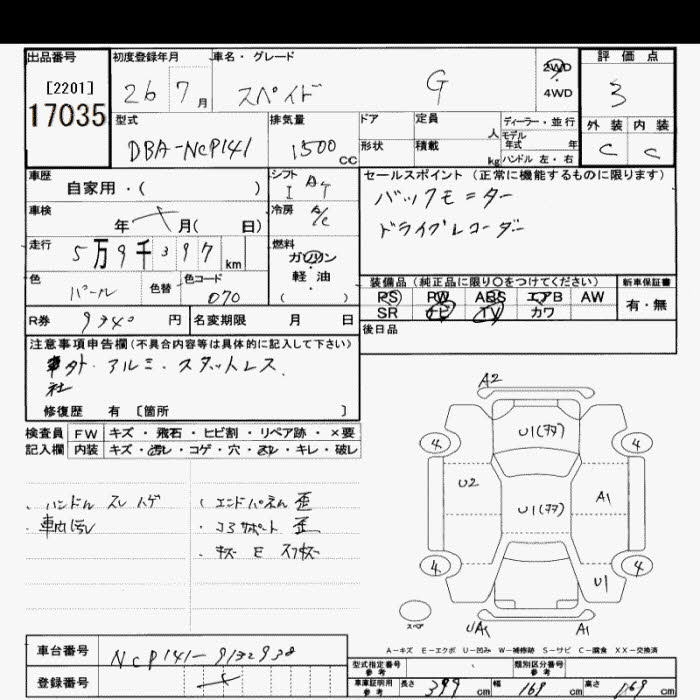 出品番号 初度登録年月 車名・グレード 評価点
[2201] 26 7月 スペイド G 2WD 3
17035 4WD
型式 排気量 ドア 定員 人 ディーラー・並行 外装 内装
DBA-NCP141 1500 CC 形状 積載 kg モデル年式 年 C C
ハンドル 左・右
車歴 シフト セールスポイント (正常に機能するものに限ります)
自家用・( ) I AT バックモニター
車検 冷房 A/C ドライブレコーダー
年 月( 日)
走行 5万9千397 km 燃料 ガソリン
軽油
( )
色 パール 色替 色コード 070
装備品 (純正品に限り○をつけてください) 新車保証書
PS PW ABS エアB AW 有・無
SR ナビ TV カワ
R券 9340 円 名変期限 月 日 後日品
注意事項申告欄(不具合内容等は具体的に記入して下さい)
社外・アルミ・スタットレス
修復歴 有 〔箇所 〕
検査員 FW キズ・飛石・ヒビ割・リペア跡・×要
記入欄 内装 キズ・汚レ・コゲ・穴・ヌレ・キレ・破レ
・ハンドル スレ ハゲ
・車内汚レ
・エンドパネル 歪
・コアサポート 歪
A2
4 U1(アタ) 4
U2 U1(アタ) A1
4 U1 4
スペア UA1 A1
A-キズ E-エクボ U-凹み W-補修跡 S-サビ C-腐食 XX-交換済
車台番号 NCP141-9132938
登録番号
型式指定番号 参考 類別区分番号 参考
車庫証明用 参考 長さ 399 cm 幅 169 cm 高さ 169 cm